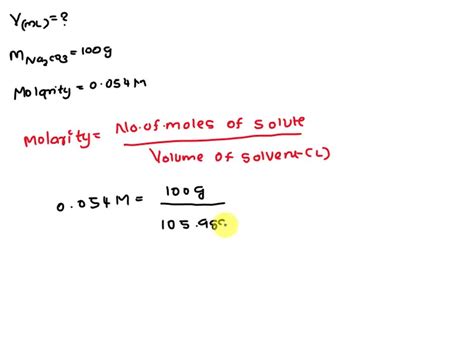 V(mL) = ?
M Na2CO3 = 100g
Molarity = 0.054 M
Molarity = No.of.moles of solute / Volume of solvent (L)
0.054 M = 100g / 105.98